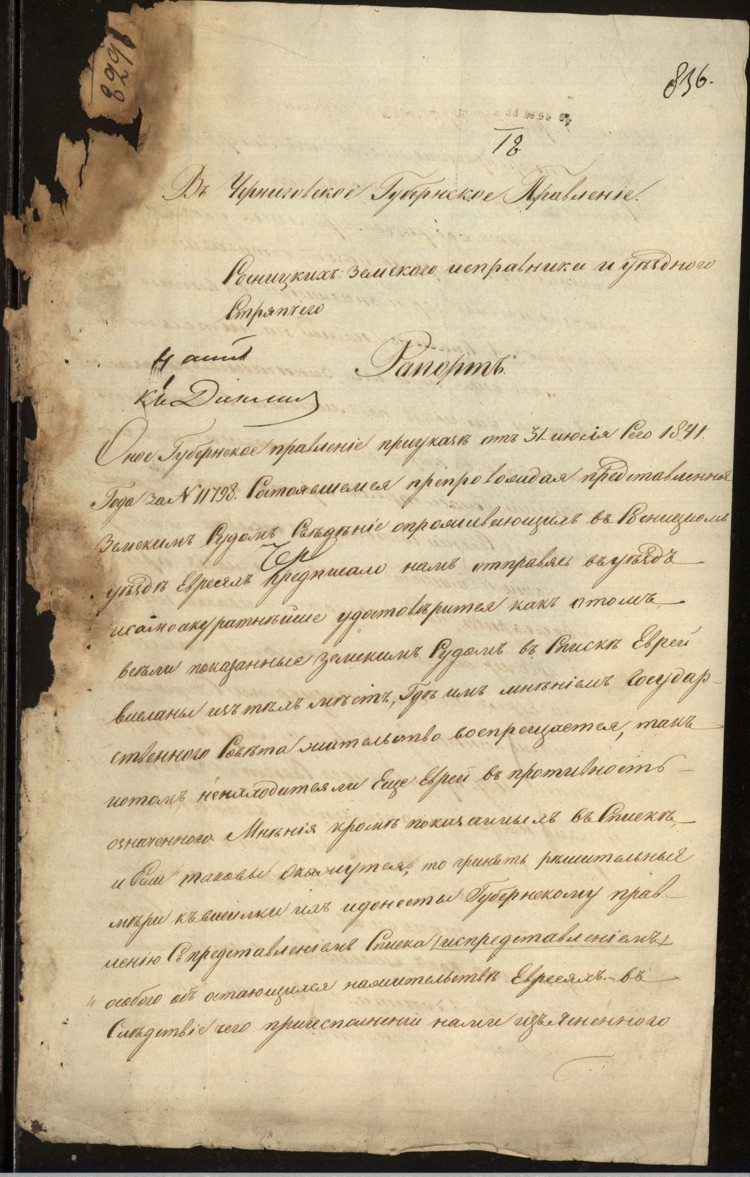 8296
836.
18
Въ Черниговское Губернское Правленіе.
Сосницкихъ Земского исправника и уѣздного
Стряпчего
Рапортъ.
къ
Оное Губернское правленіе приуказѣ отъ 31 июля Сего 1841
Года за № 11798. Состоявшемся препровождая представленное
Земскимъ Судомъ Свѣдѣніе опроживающихъ въ Сосницкомъ
уѣздѣ Евреяхъ предписало намъ отправясь въуѣздъ
исамоакуратнѣйше удостовѣрится какъ отомъ
всѣли показанные Земскимъ Судомъ въ Спискѣ Евреи
висланы изъ тѣхъ мѣстъ, Гдѣ имъ мнѣніемъ Государ-
ственного Совѣта жительство воспрещается, такъ
иотомъ ненаходитсяли Еще Евреи въ противность
означенного Мнѣнія кромѣ показанныхъ въ Спискѣ
и Если таковые окажутся, то принять рѣшительные
мѣри къвисилки ихъ идонесть Губернскому прав-
ленію Спредставленіемъ Списка испредставленіемъ
особого объ остающихся нажительствѣ Евреяхъ въ
Слѣдствіе чего приисполненіи нами изъясненного